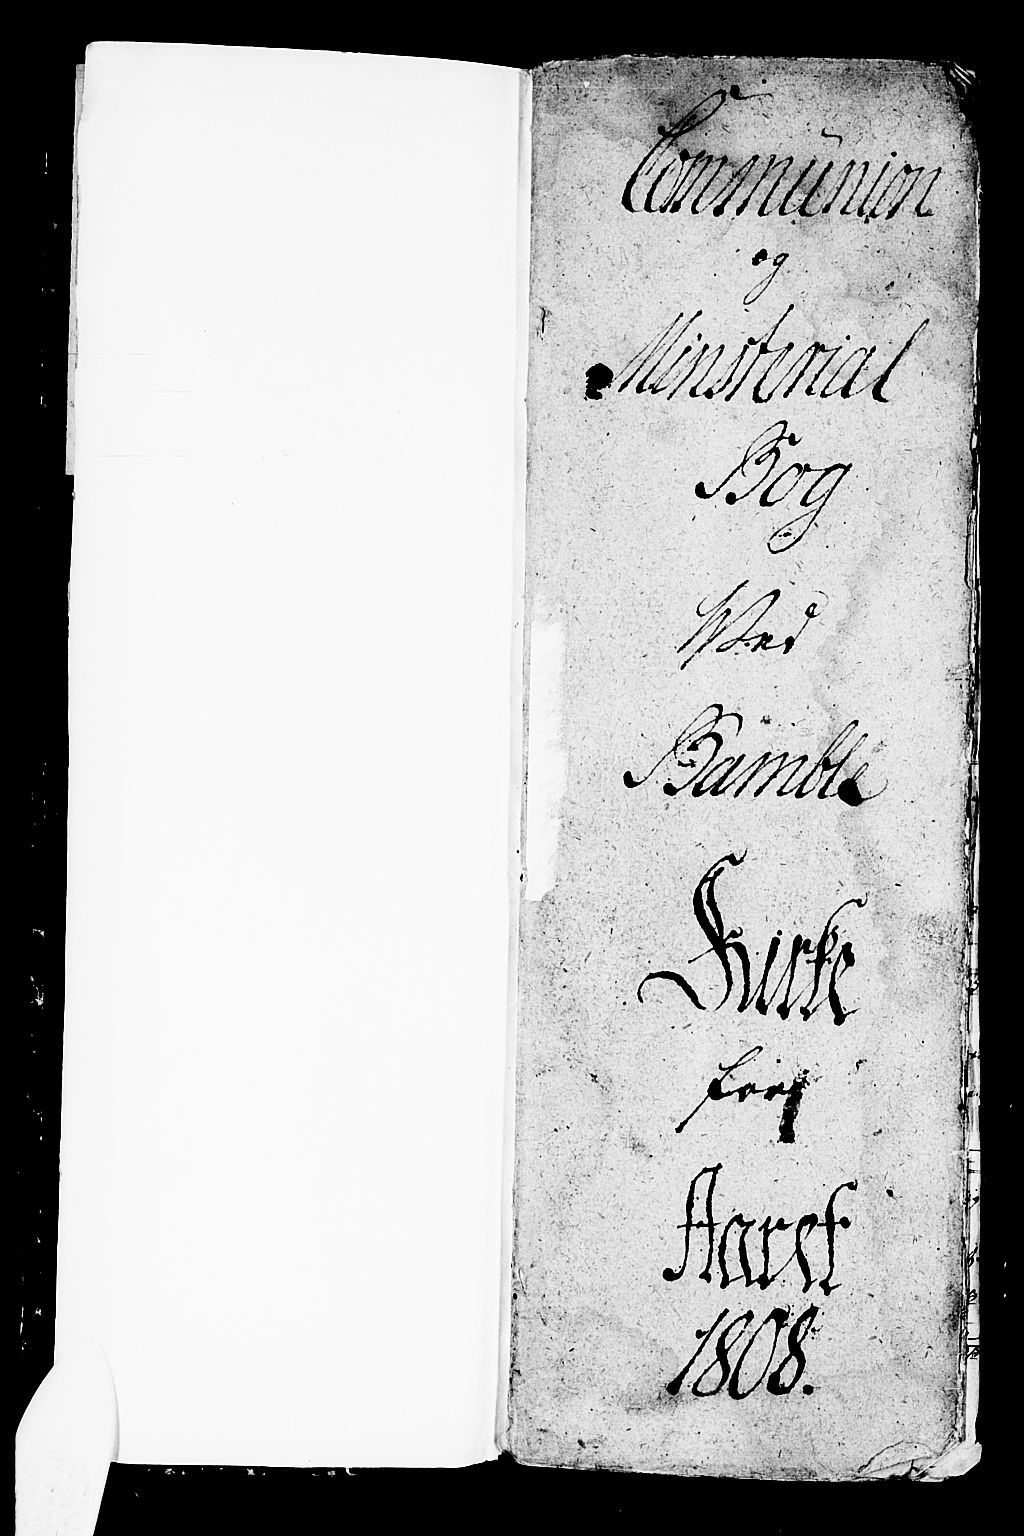 Communion
og
Minsterial
Bog
Wed
Bamble
Kirke
for
Aaret
1808.